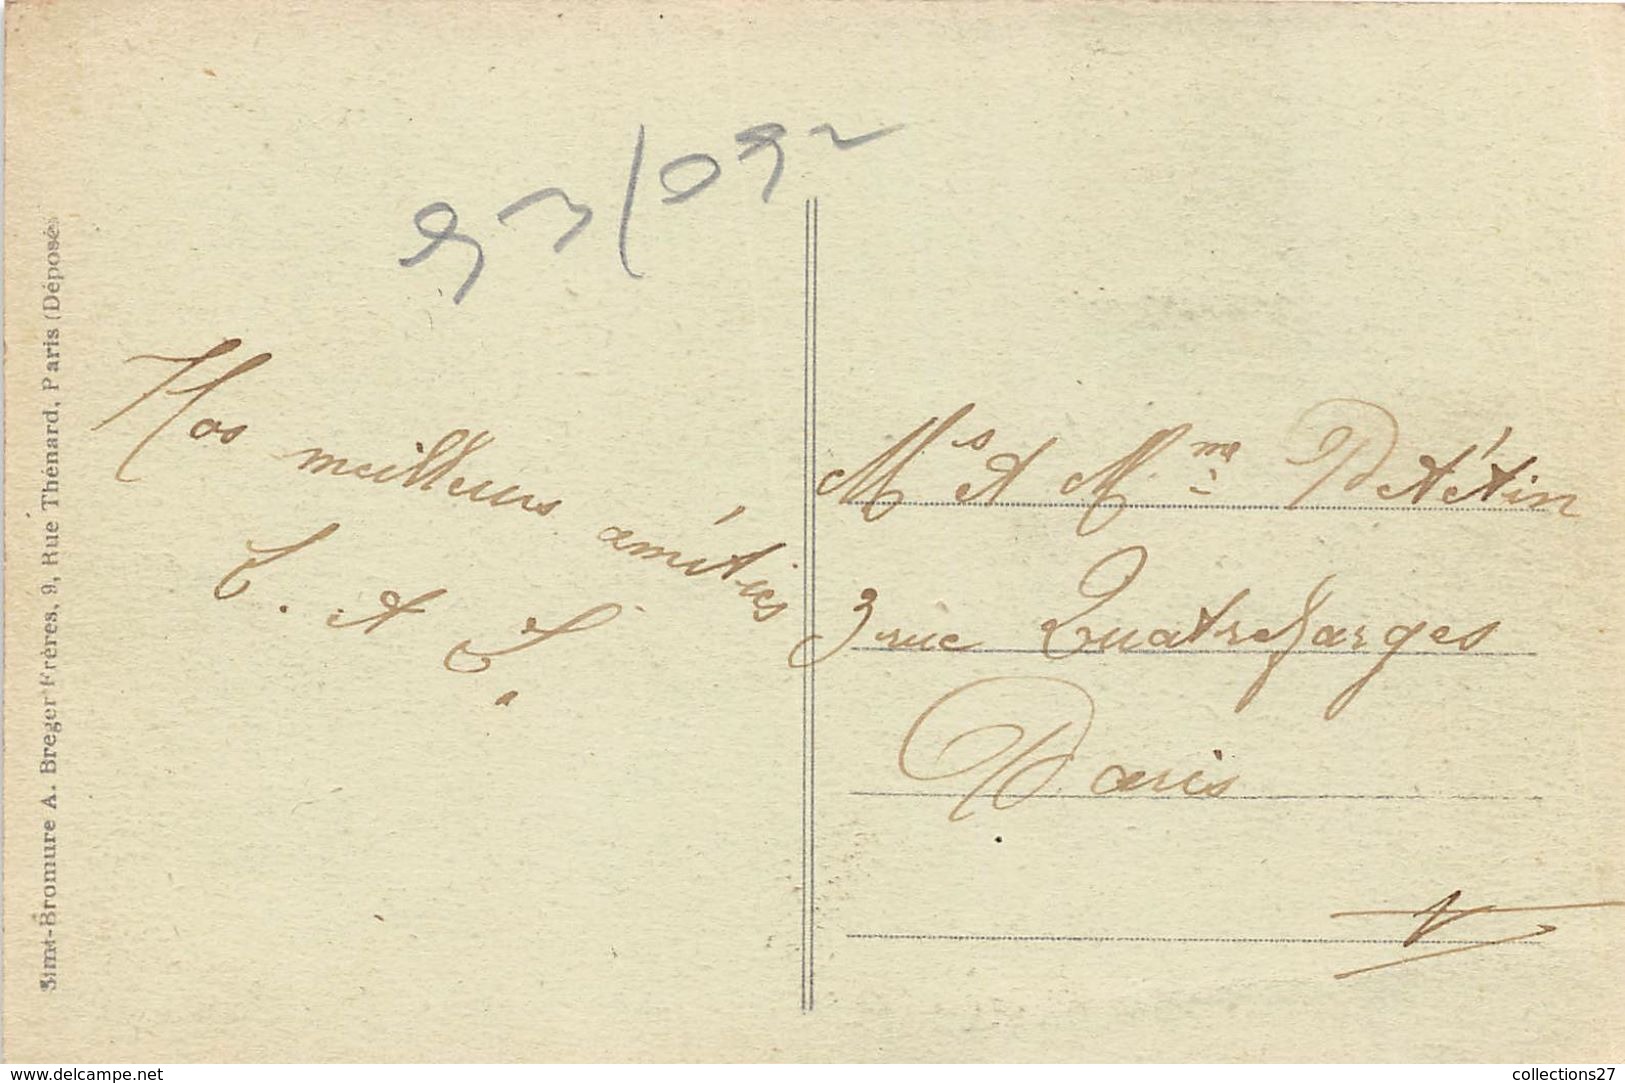 Simi-Bromure A. Breger Frères, 9, Rue Thénard, Paris (Déposé)
Nos meilleurs amitiés
E. et E.
Mr et Mme Petétin
3 rue Quatrefarges
Paris
www.delcampe.net
collections27